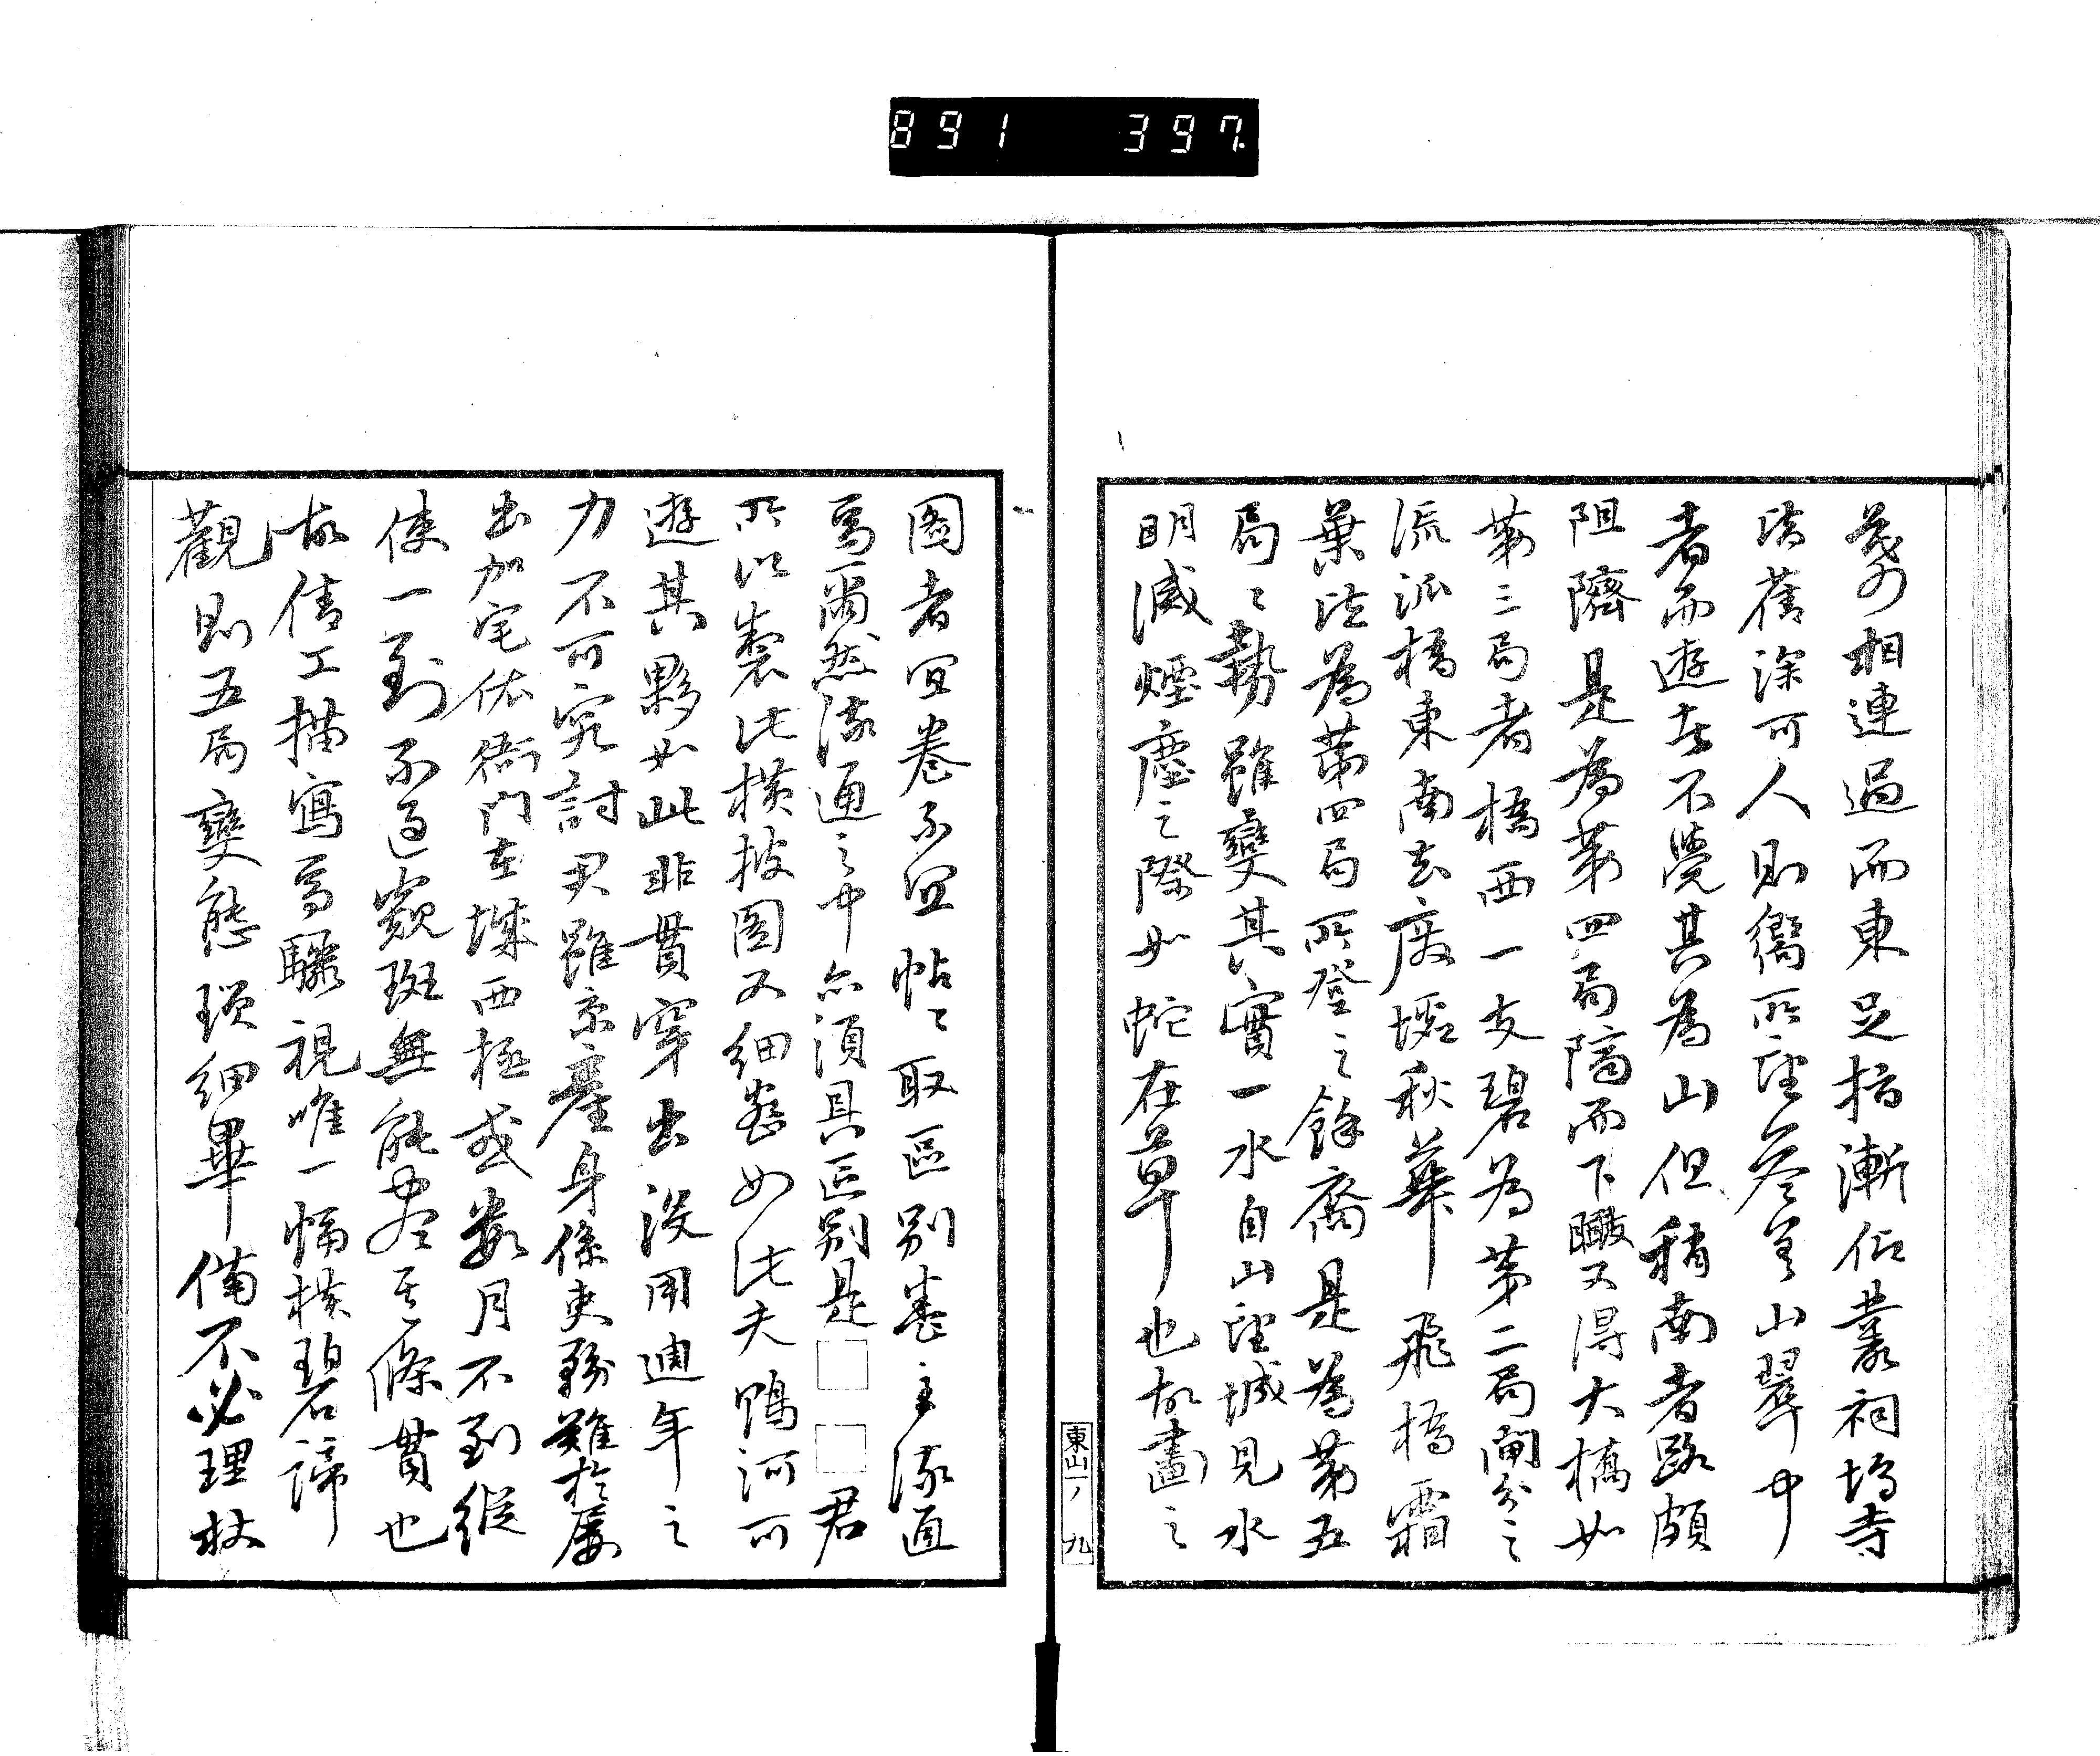 891 397
相連過而東足指漸仰叢祠塢寺
舊深可人則嚮所望參差山翠中
者而遊者不覺其為山但稍南者路頗
阻隮是為第四局隮而下瞰又得大橋如
第三局者橋西一支碧為第二局閘分之
流派橋東南去廢墟秋華飛橋霜
葉注為第四局所登之餘裔是為第五
局〻勢雖變其實一水自山望城見水
明滅煙塵之際如蛇在草也故畫之
東山一ノ九
圖者宜卷不宜帖〻取區別卷主流通
焉爾然流通之中亦須具區別是□□君
所以製此橫披圖又細密如此夫鴨河可
遊其夥如此非貫穿出沒用週年之
力不可究討尹雖京產身係吏務難於屢
出加宅依衙門在城西極或數月不到縱
使一到不過窺斑無能盡其條貫也
故倩工描寫焉驟視唯一幅橫碧諦
觀則五局變態瑣細畢備不必理杖